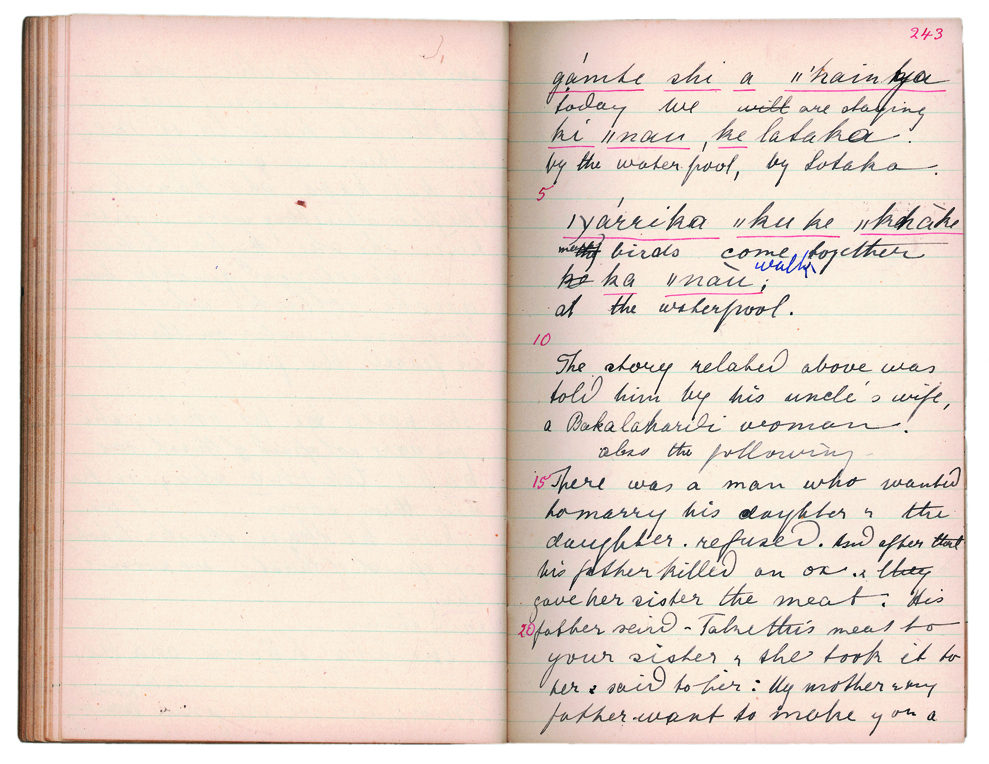 243
gámke shi a ǁ'hain kya
today we will are staying
ki ǁnau, ke lataka.
by the waterpool, by Lotaka.
5
ǀyárrika ǁku ke ǁkháke
birds come together
walk
ke ka ǁnàu;
at the waterpool.
10
The story related above was
told him by his uncle's wife,
a Bakalaharidi woman.
also the following
15 There was a man who wanted
to marry his daughter & the
daughter. refused. And after that
his father killed an ox. & they
gave her sister the meat: His
20 father said - Take this meat to
your sister & she took it to
her & said to her: My mother & my
father want to make you a